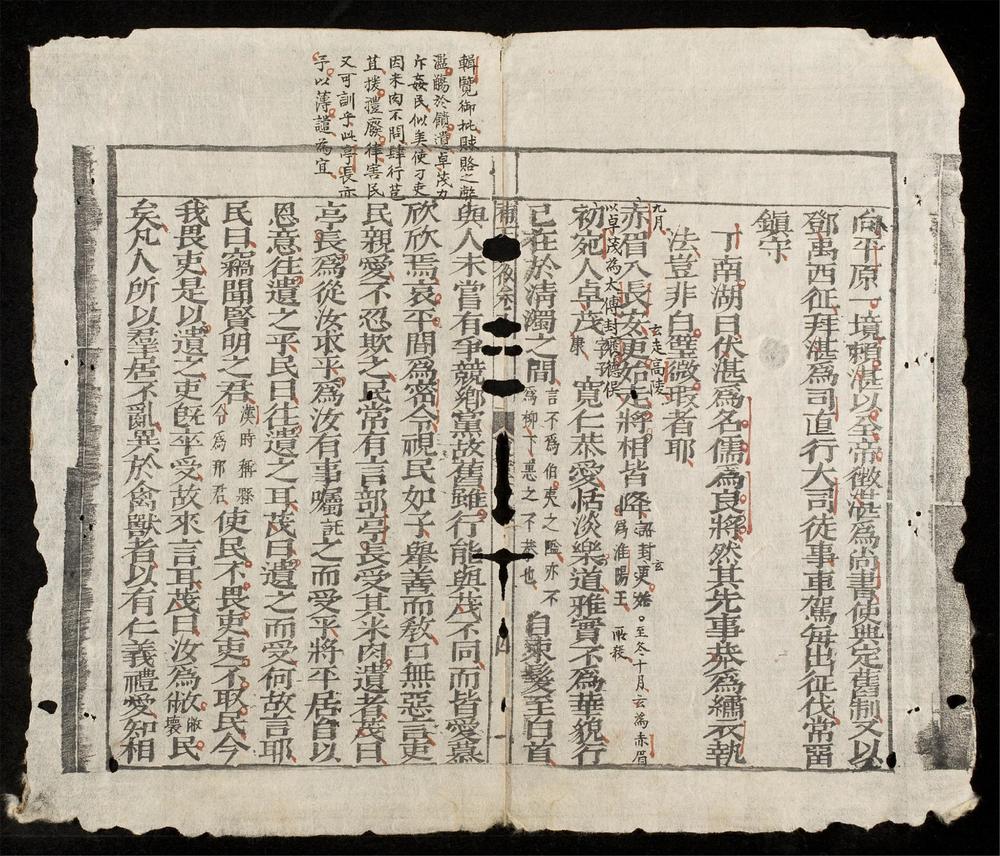 輯覽御批賕賂之弊
濫觴於餽遺卓茂力
斥姦民似矣使刁吏
因米肉不問肆行苞
苴援禮廢律害民
又可訓乎此亭長亦
予以薄譴為宜
向平原一境賴湛以全帝徵湛爲尚書使典定舊制又以
鄧禹西征拜湛爲司直行大司徒事車駕每出征伐常畱
鎮守
丁南湖曰伏湛爲名儒爲良將然其先事恭爲繡衣執
法豈非白璧微瑕者耶
九月
玄走高陵
赤眉入長安更始走將相皆降詔封更始爲淮陽王。至冬十月玄為赤眉所殺
以卓茂為太傅封褒德侯
初宛人卓茂字子康寬仁恭愛恬淡樂道雅實不爲華貌行
己在於淸濁之間言不爲伯夷之隘亦不爲柳下惠之不恭也自束髮至白首
與人未嘗有爭競鄉黨故舊雖行能與茂不同而皆愛慕
欣欣焉哀平間爲密令視民如子舉善而敎口無惡言吏
民親愛不忍欺之民常有言部亭長受其米肉遺者茂曰
亭長爲從汝求乎爲汝有事囑託之而受乎將平居自以
恩意往遺之乎民曰往遺之耳茂曰遺之而受何故言耶
民曰竊聞賢明之君漢時稱縣令爲那君使民不畏吏吏不取民今
我畏吏是以遺之吏旣卒受故來言耳茂曰汝爲敝敝壞民
矣凡人所以羣居不亂異於禽獸者以有仁義禮愛知相